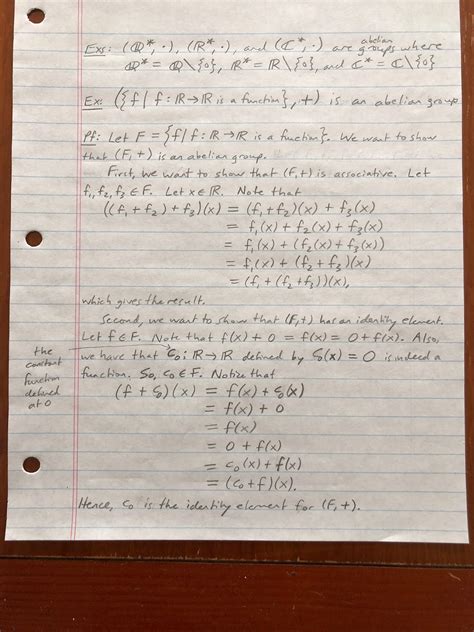 Exs: (ℚ*, ·), (ℝ*, ·), and (ℂ*, ·) are abelian groups where
ℚ* = ℚ\{0}, ℝ* = ℝ\{0}, and ℂ* = ℂ\{0}
Ex: ({f | f: ℝ→ℝ is a function}, +) is an abelian group
Pf: Let F = {f | f: ℝ→ℝ is a function}. We want to show
that (F, +) is an abelian group.
First, we want to show that (F, +) is associative. Let
f₁, f₂, f₃ ∈ F. Let x ∈ ℝ. Note that
((f₁ + f₂) + f₃)(x) = (f₁ + f₂)(x) + f₃(x)
= f₁(x) + f₂(x) + f₃(x)
= f₁(x) + (f₂(x) + f₃(x))
= f₁(x) + (f₂ + f₃)(x)
= (f₁ + (f₂ + f₃))(x),
which gives the result.
Second, we want to show that (F, +) has an identity element.
Let f ∈ F. Note that f(x) + 0 = f(x) = 0 + f(x). Also,
we have that c₀: ℝ→ℝ defined by c₀(x) = 0 is indeed a
function. So, c₀ ∈ F. Notice that
the
constant
function
defined
at 0
(f + c₀)(x) = f(x) + c₀(x)
= f(x) + 0
= f(x)
= 0 + f(x)
= c₀(x) + f(x)
= (c₀ + f)(x).
Hence, c₀ is the identity element for (F, +).